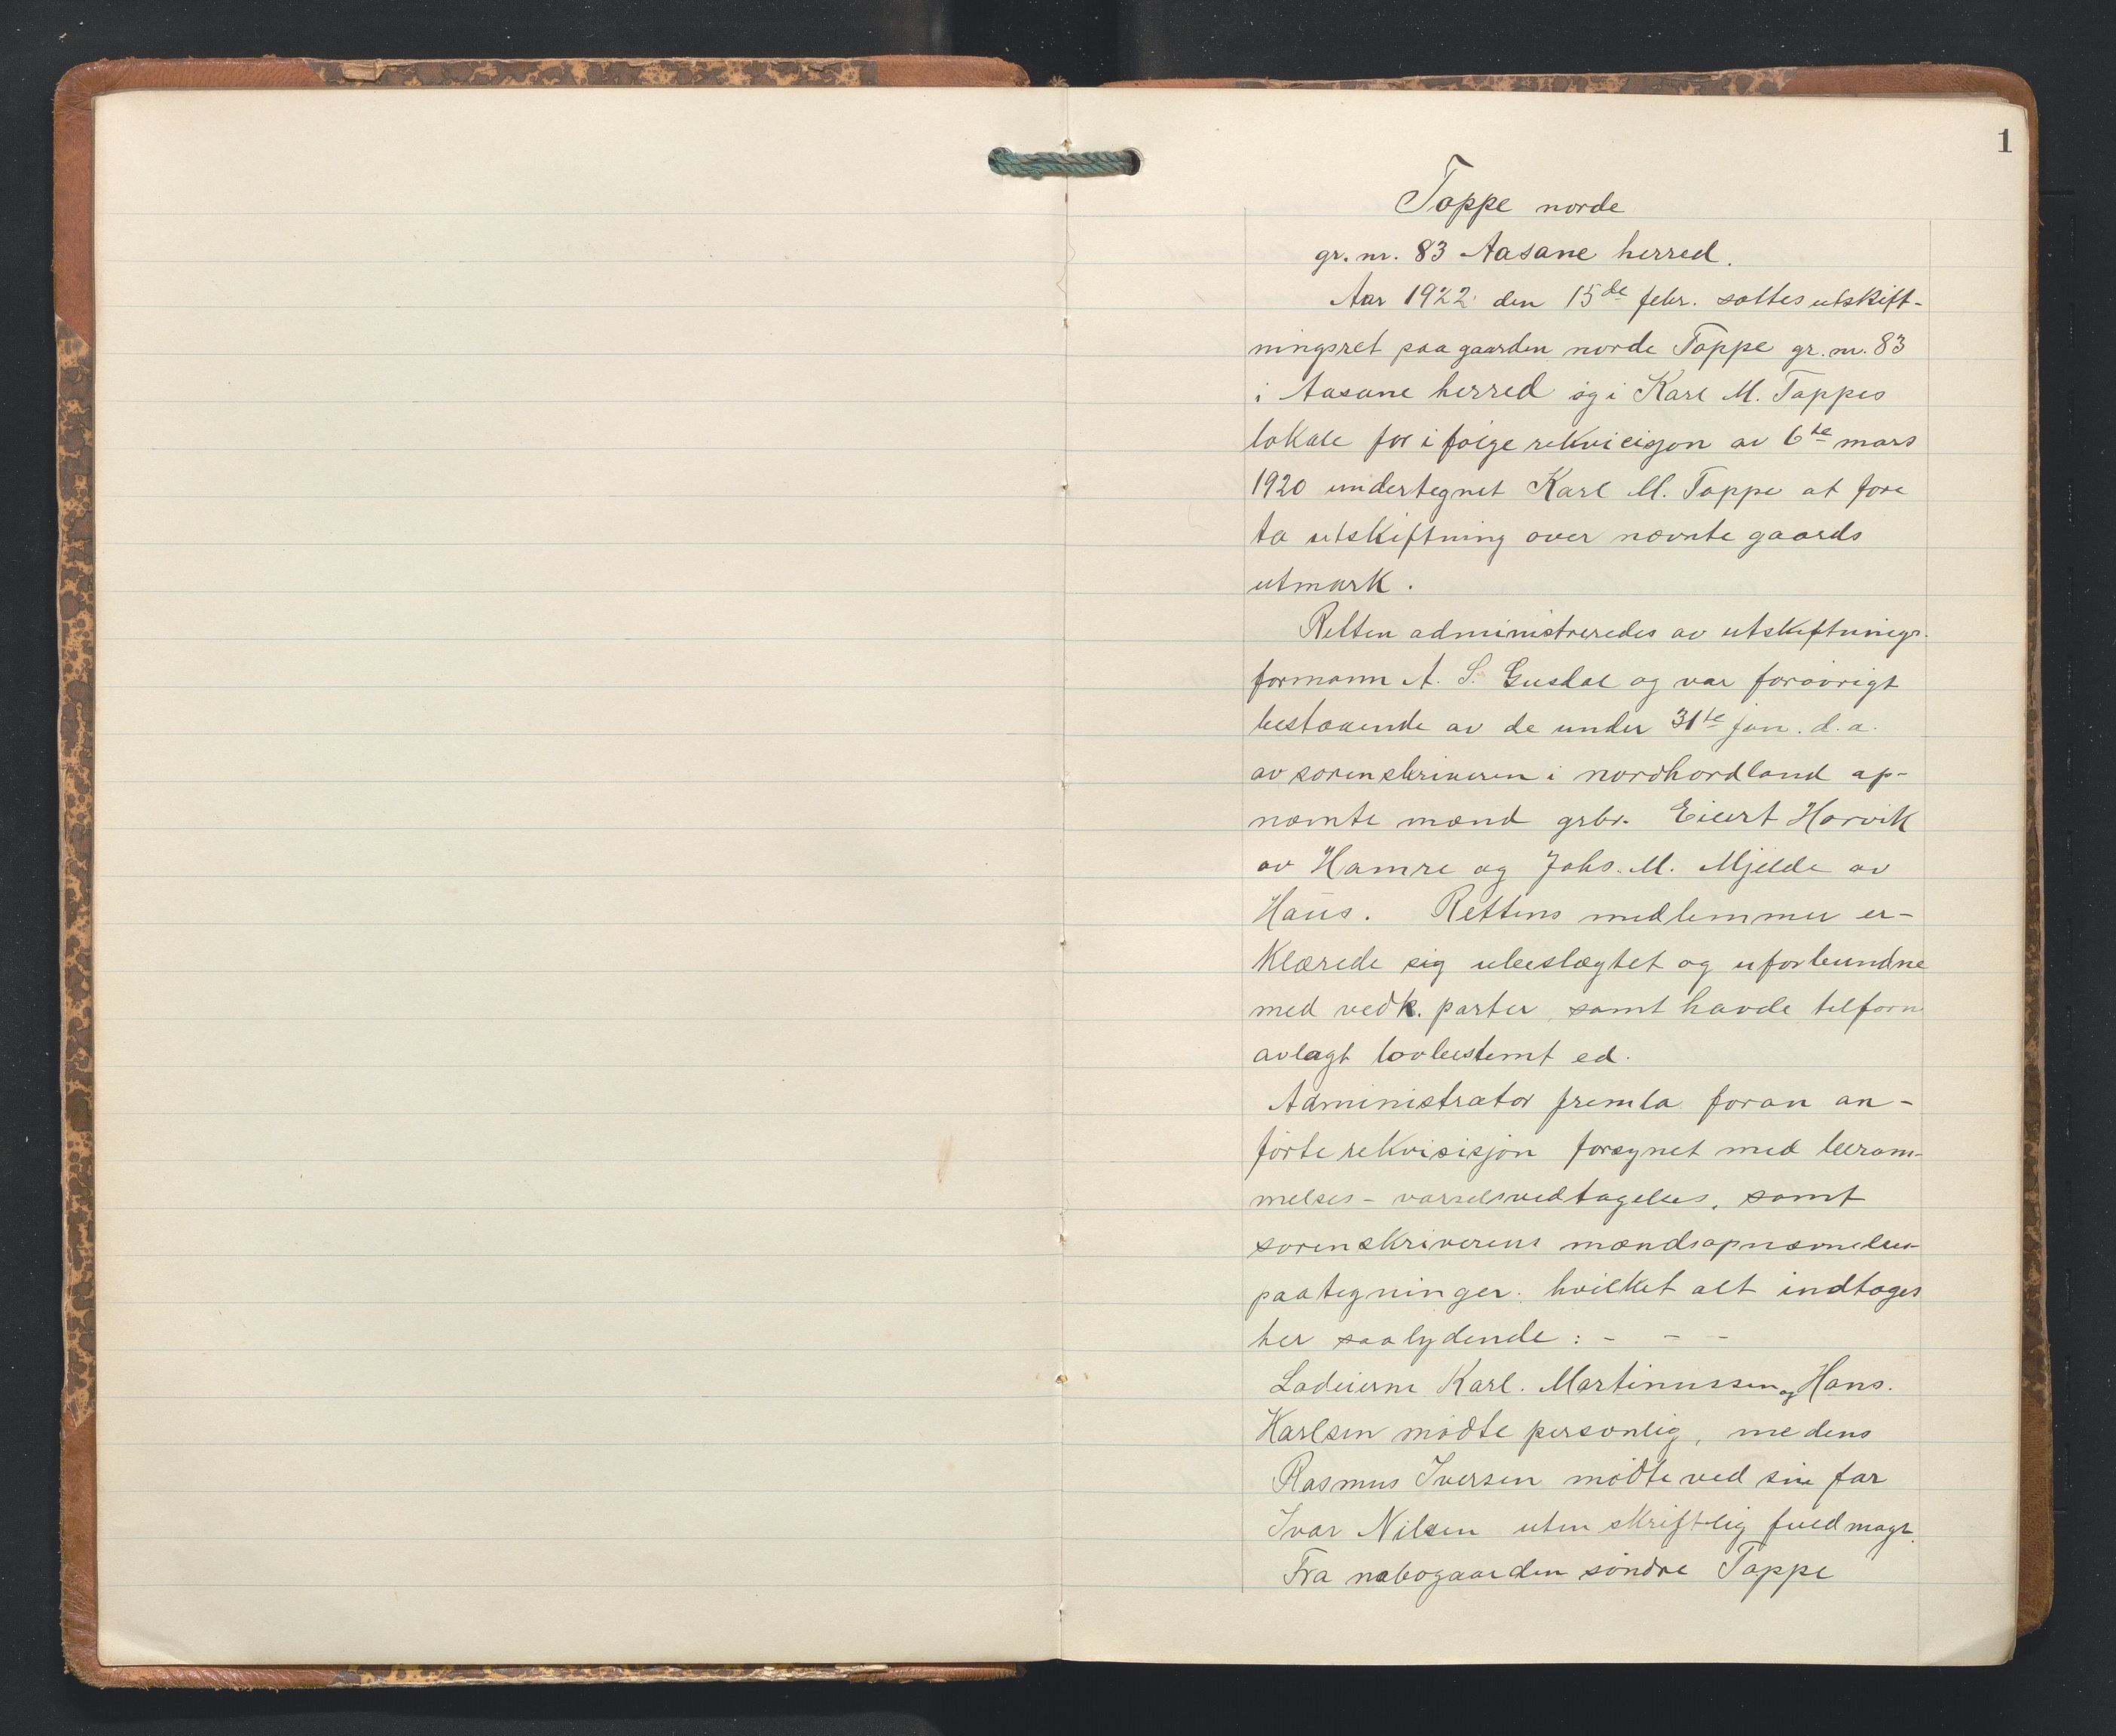 1
Toppe nordre
gr. nr. 83 Aasane herred.
Aar 1922 den 15de febr. sattes utskift-
ningsret paa gaarden nordre Toppe gr. nr. 83
i Aasane herred og i Karl M. Toppes
lokale for ifølge rekvicisjon av 6te mars
1920 undertegnet Karl M. Toppe at fore
ta utskiftning over nævnte gaards
utmark.
Retten administreredes av utskiftnings-
formann A. S. Gusdal og var forøvrigt
bestaaende av de under 31te jan. d.a.
av sorenskriveren i nordhordland op-
nævnte mænd grbr. Eilert Horvik
av Hamre og Johs. M. Mjelde av
Haus. Rettens medlemmer er-
klærede sig ubeslægtet og uforbundne
med vedk. parter samt havde tilforn
avlagt lovbestemt ed.
Administrator fremla foran an-
førte rekvisisjon forsynet med beram-
melses- varselsvedtagelses, samt
sorenskriverens mændsopnævnelses-
paategninger. hvilket alt indtages
her saalydende: - - -
Lodeierne Karl. Martinussen og Hans.
Karlsen mødte personlig, medens
Rasmus Iversen mødte ved sin far
Ivar Nilsen uten skriftlig fuldmagt.
Fra nabogaarden søndre Toppe